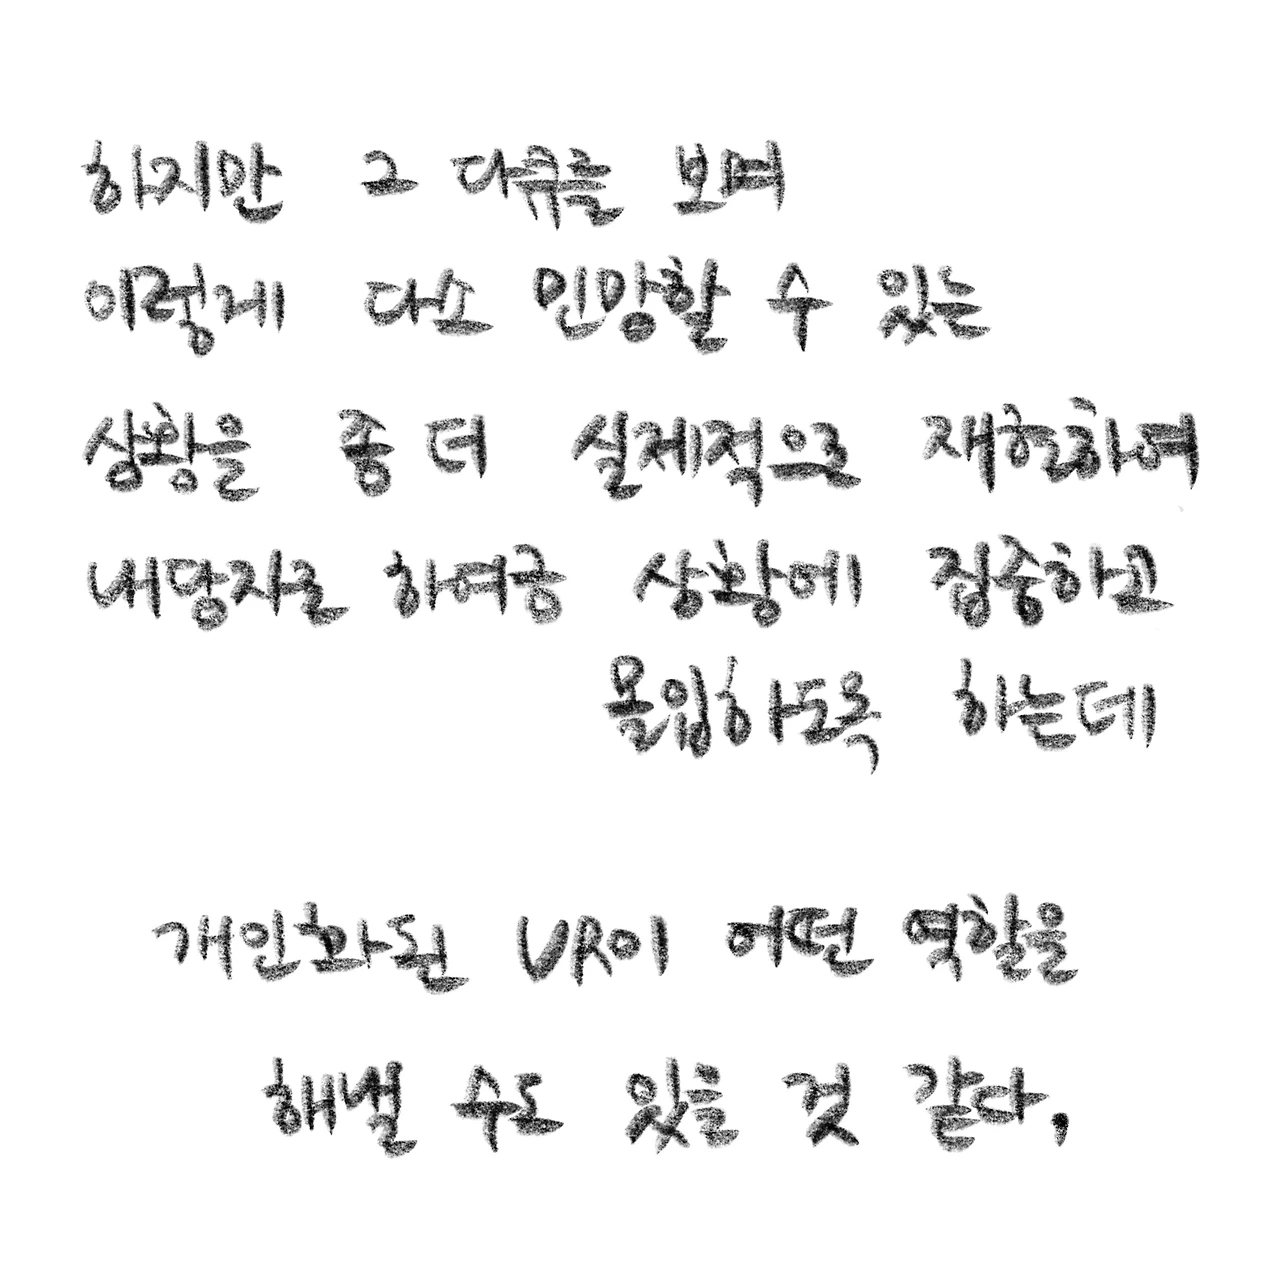 하지만 그 다큐를 보며
이렇게 다소 민망할 수 있는
상황을 좀 더 실제적으로 재현하여
내담자로 하여금 상황에 집중하고
몰입하도록 하는데
개인화된 VR이 어떤 역할을
해낼 수도 있을 것 같다,